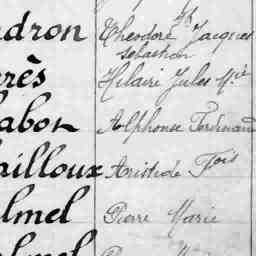 udron Theodore Jh Jacques
Sebastien
rès Hilaire Jules Mie
abon Alphonse Ferdinand
ailloux Aristide Fois
lmel Pierre Marie
lmel